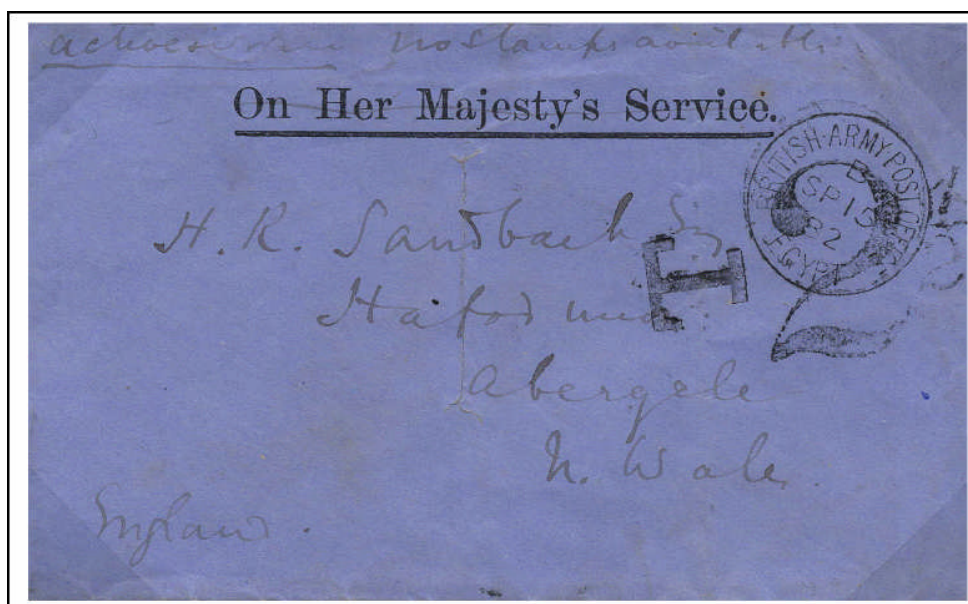 active service no stamps available
On Her Majesty's Service.
BRITISH·ARMY·POST OFFICE
B
SP 15
82
EGYPT
H. R. Sandbach Esq
T
2
Hafod
Abergele
N. Wales
England.